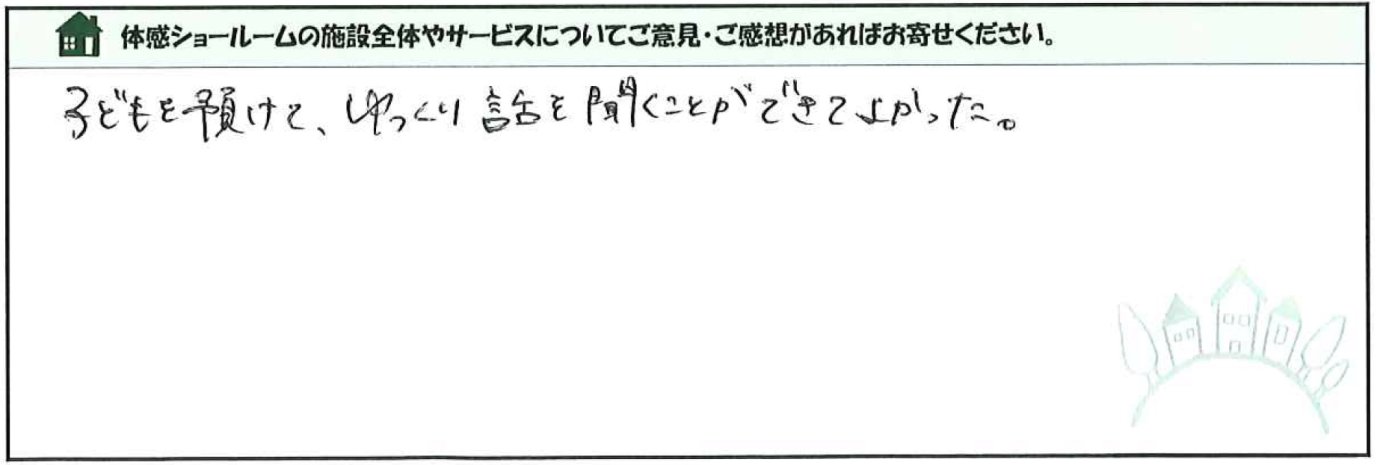 体感ショールームの施設全体やサービスについてご意見・ご感想があればお寄せください。
子どもを預けて、ゆっくり話を聞くことができてよかった。